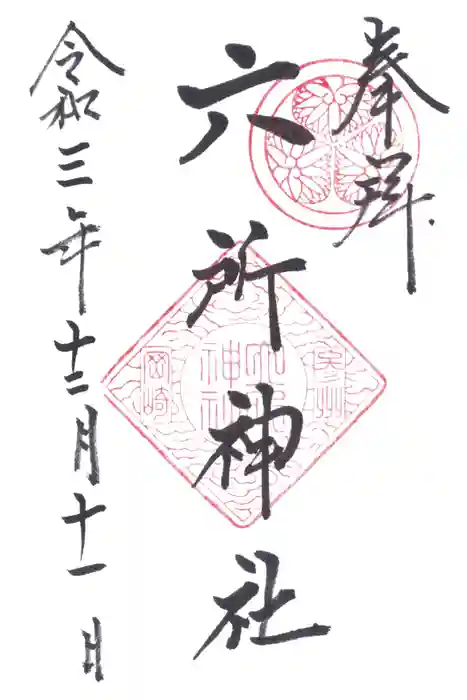 奉拝
六所神社
令和三年十二月十一日
岡崎